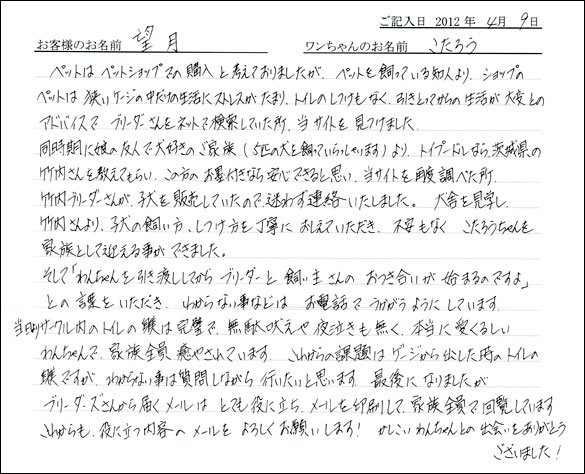 ご記入日 2012 年 4月 9日
お客様のお名前 望月 ワンちゃんのお名前 こたろう
ペットは ペットショップでの購入と考えておりましたが、ペットを飼っている知人より、ショップの
ペットは狭いゲージの中だけの生活にストレスがたまり、トイレのしつけもなく、引きとってからの生活が大変との
アドバイスで ブリーダーさんをネットで検索していた所、当サイトを見つけました。
同時期に娘の友人で犬好きのご家族(5匹の犬を飼っていらっしゃいます)より、トイプードルなら、茨城県の
竹内さんを教えてもらい、この方のお墨付きなら安心できると思い、当サイトを再度調べた所、
竹内ブリーダーさんが、子犬を販売していたので、迷わず連絡いたしました。 犬舎を見学し、
竹内さんより、子犬の飼い方、しつけ方を丁寧におしえていただき、不安もなく こたろうちゃんを
家族として迎える事ができました。
そして「わんちゃんを引き渡ししてから ブリーダーと飼い主さんの おつき合いが 始まるのですよ」
との言葉をいただき、わからない事などは お電話で うかがうようにしています。
当日よりサークル内のトイレの躾は完璧で、無駄吠えや夜泣きも無く、本当に愛くるしい
わんちゃんで、家族全員 癒やされています。 これからの課題はゲージから出した時のトイレの
躾ですが、わからない事は質問しながら 行いたいと思います。 最後になりましたが
ブリーダーズさんから届くメールは とても役に立ち、メールを印刷して、家族全員で回覧しています
これからも、役に立つ内容のメールを よろしくお願いします! かしこいわんちゃんとの出会いをありがとう
ございました!